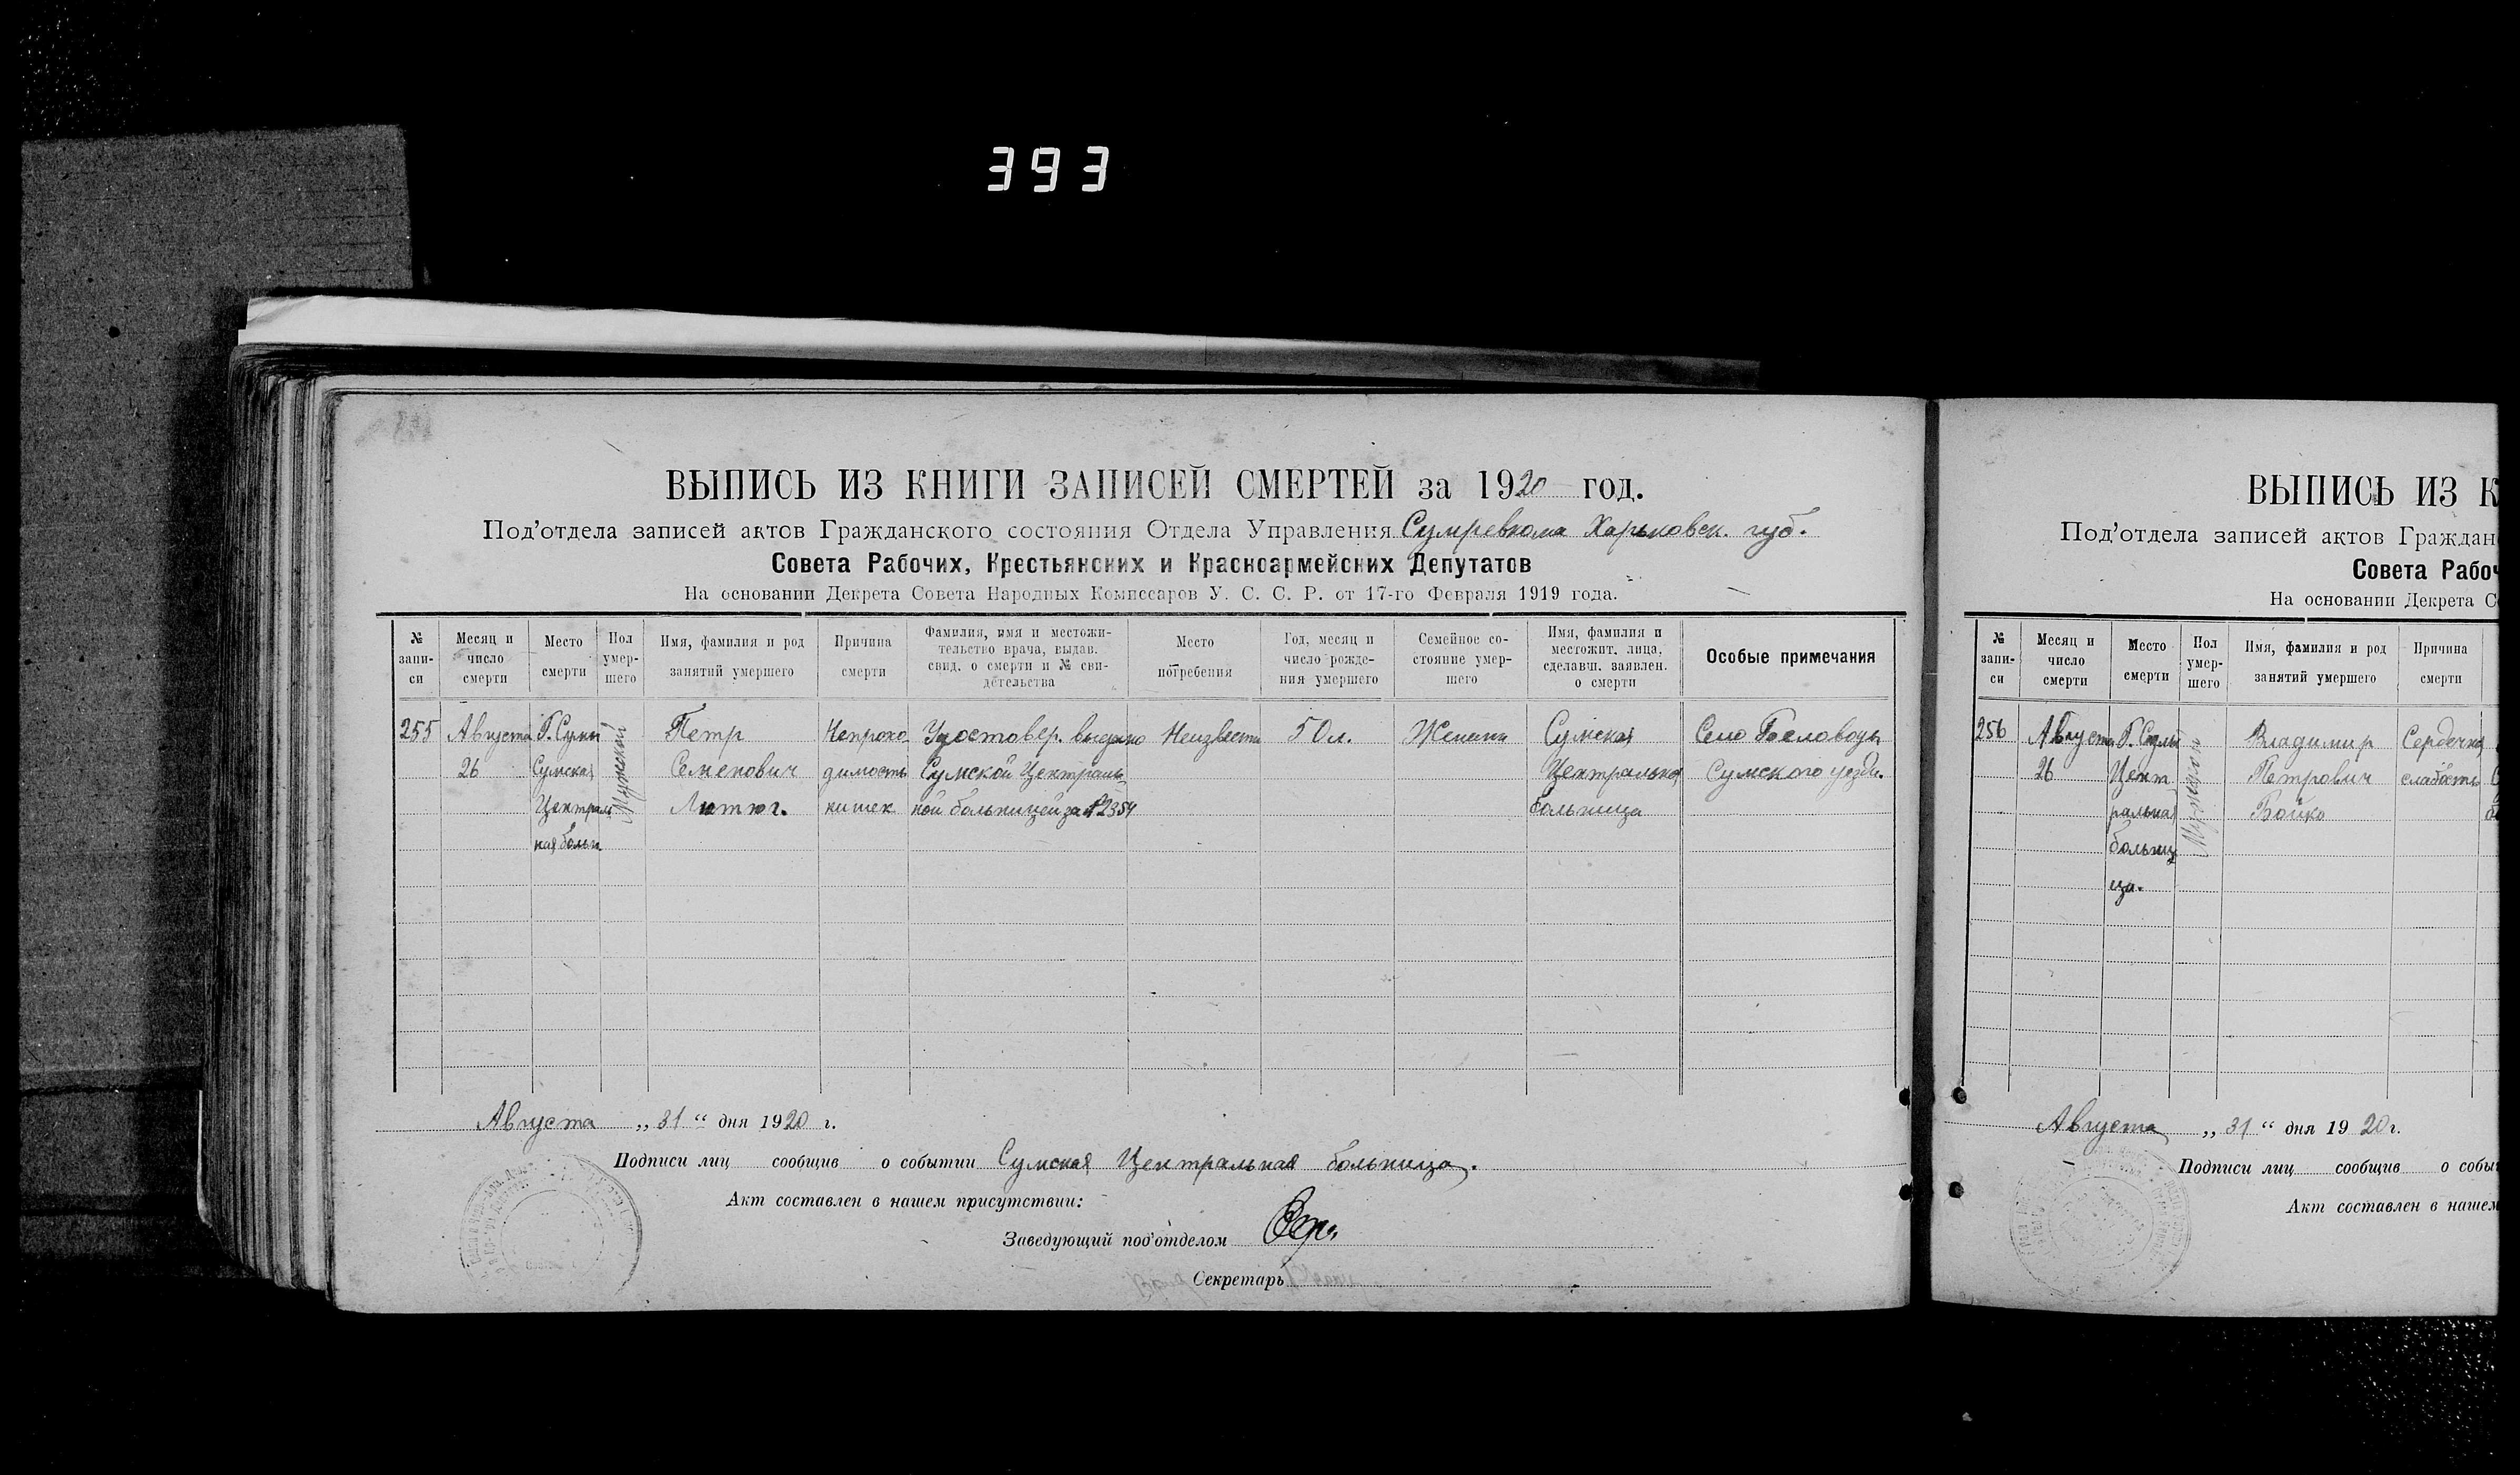 393
ВЫПИСЬ ИЗ КНИГИ ЗАПИСЕЙ СМЕРТЕЙ за 1920 год.
Под'отдела записей актов Гражданского состояния Отдела Управления Сумревкома Харьковск. губ.
Совета Рабочих, Крестьянских и Красноармейских Депутатов
На основании Декрета Совета Народных Комиссаров У. С. С. Р. от 17-го Февраля 1919 года.
№ запи-
си
Месяц и
число
смерти
Место
смерти
Пол
умер-
шего
Имя, фамилия и род
занятий умершего
Причина
смерти
Фамилия, имя и местожи-
тельство врача, выдав.
свид. о смерти и № сви-
детельства
Место
погребения
Год, месяц и
число рожде-
ния умершего
Семейное со-
стояние умер-
шего
Имя, фамилия и
местожит. лица,
сделавш. заявлен.
о смерти
Особые примечания
255
Августа
26
Г. Сумы
Сумская
Централь
ная больн.
Мужской
Петр
Семенович
Непрохо-
димость
кишек
Удостовер. выдано
Сумской Централь-
ной больницей за № 2354
Неизвестн
50 л.
Женат
Сумская
Центральная
больница
Село
Сумского уезда.
Августа „ 31 “ дня 1920 г.
Подписи лиц сообщив о событии Сумская Центральная больница.
Акт составлен в нашем присутствии:
Заведующий под'отделом
Секретарь
ВЫПИСЬ ИЗ К
Под'отдела записей актов Граждан
Совета Рабоч
На основании Декрета С
№
запи-
си
Месяц и
число
смерти
Место
смерти
Пол
умер-
шего
Имя, фамилия и род
занятий умершего
Причина
смерти
256
Августа
26
Г. Сумы
Цент
ральная
больни
ца.
Мужской
Владимир
Петрович
Бойко
Сердечная
слабость
Августа „ 31 “ дня 1920 г.
Подписи лиц сообщив о собы
Акт составлен в нашем